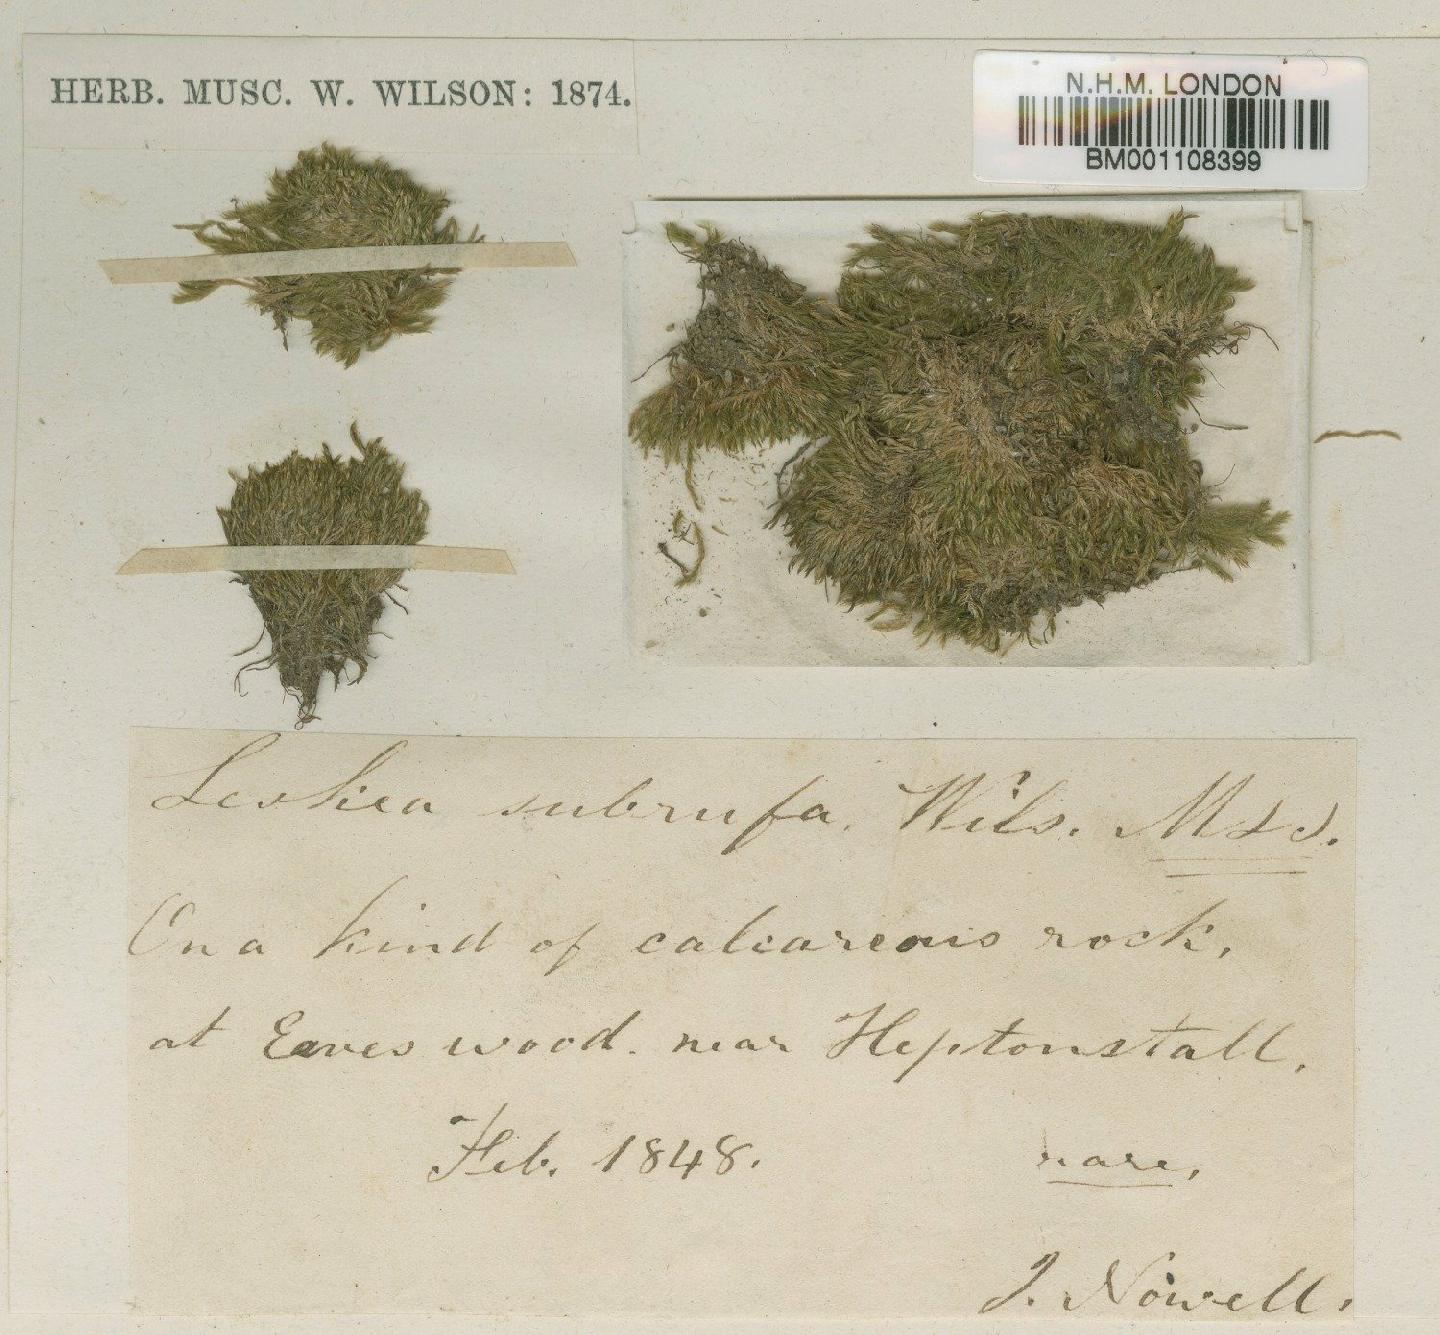 HERB. MUSC. W. WILSON: 1874.
N.H.M. LONDON
BM001108399
Leskea subrufa. Wils. Mss.
On a kind of calcareous rock,
at Eaves wood. near Heptonstall.
Feb. 1848. rare,
J. Nowell.